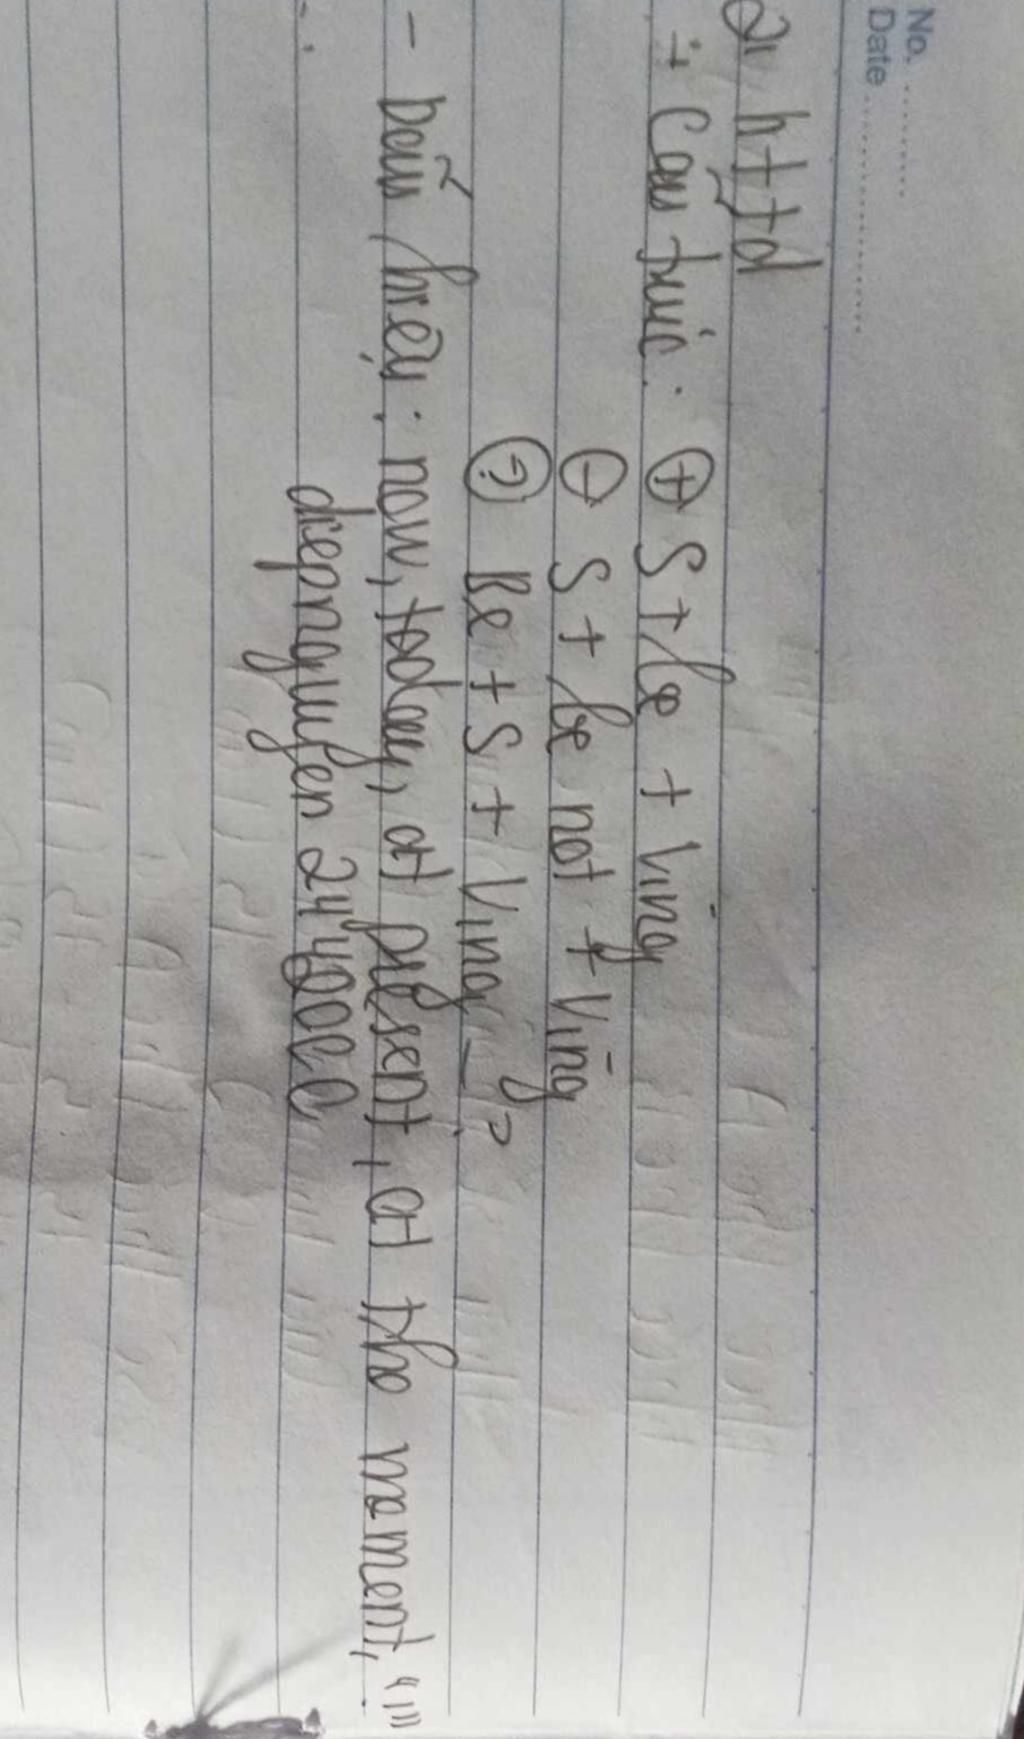 No. ..........
Date ..........................
2, httd
+ Cấu trúc: (+) S + be + Ving
(-) S + be not + Ving
(?) Be + S + Ving _ ?
- Dấu hiệu: now, today, at present, at the moment, "!!!
diepnguyen 244